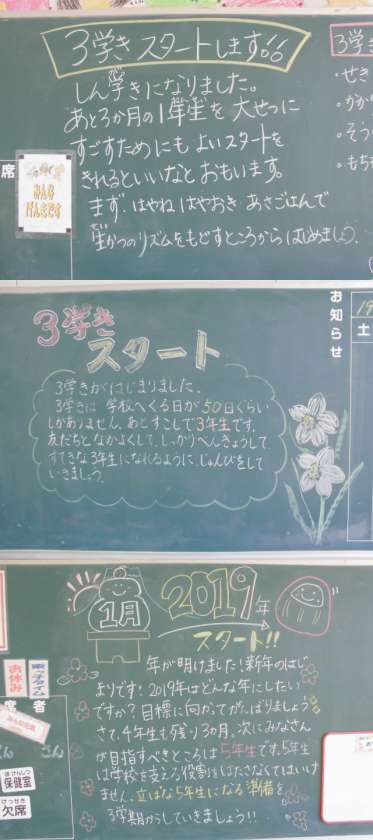 3学き スタートします!!
しん学きになりました。
あと3か月の1年生を 大せつに
すごすためにも よいスタートを
きれるといいなと おもいます。
まず、はやね はやおき あさごはんで
生かつのリズムをもどすところから はじめましょう。
席
みんな
げんきです
3学き
・せき
・かか
・そう
・もち
3学き
スタート
3学きがはじまりました。
3学きは 学校へくる日が 50日ぐらい
しかありません。あとすこしで3年生です。
友だちとなかよくして、しっかりべんきょうして
すてきな3年生になれるように、じゅんびをして
いきましょう。
お知らせ
19
土
1月
2019年
スタート!!
年が明けました!新年のはじ
まりです。2019年はどんな年にしたい
ですか?目標に向かってがんばりましょう。
さて、今年生も残り3ヵ月。次にみなさん
が目指すべきところは5年生です。5年生
は学校を支える役割をはたさなくてはいけ
ません。立ぱな5年生になる準備を
3学期からしていきましょう!!
お休み
席者
さん
さん
ほけんしつ
保健室
けっせき
欠席